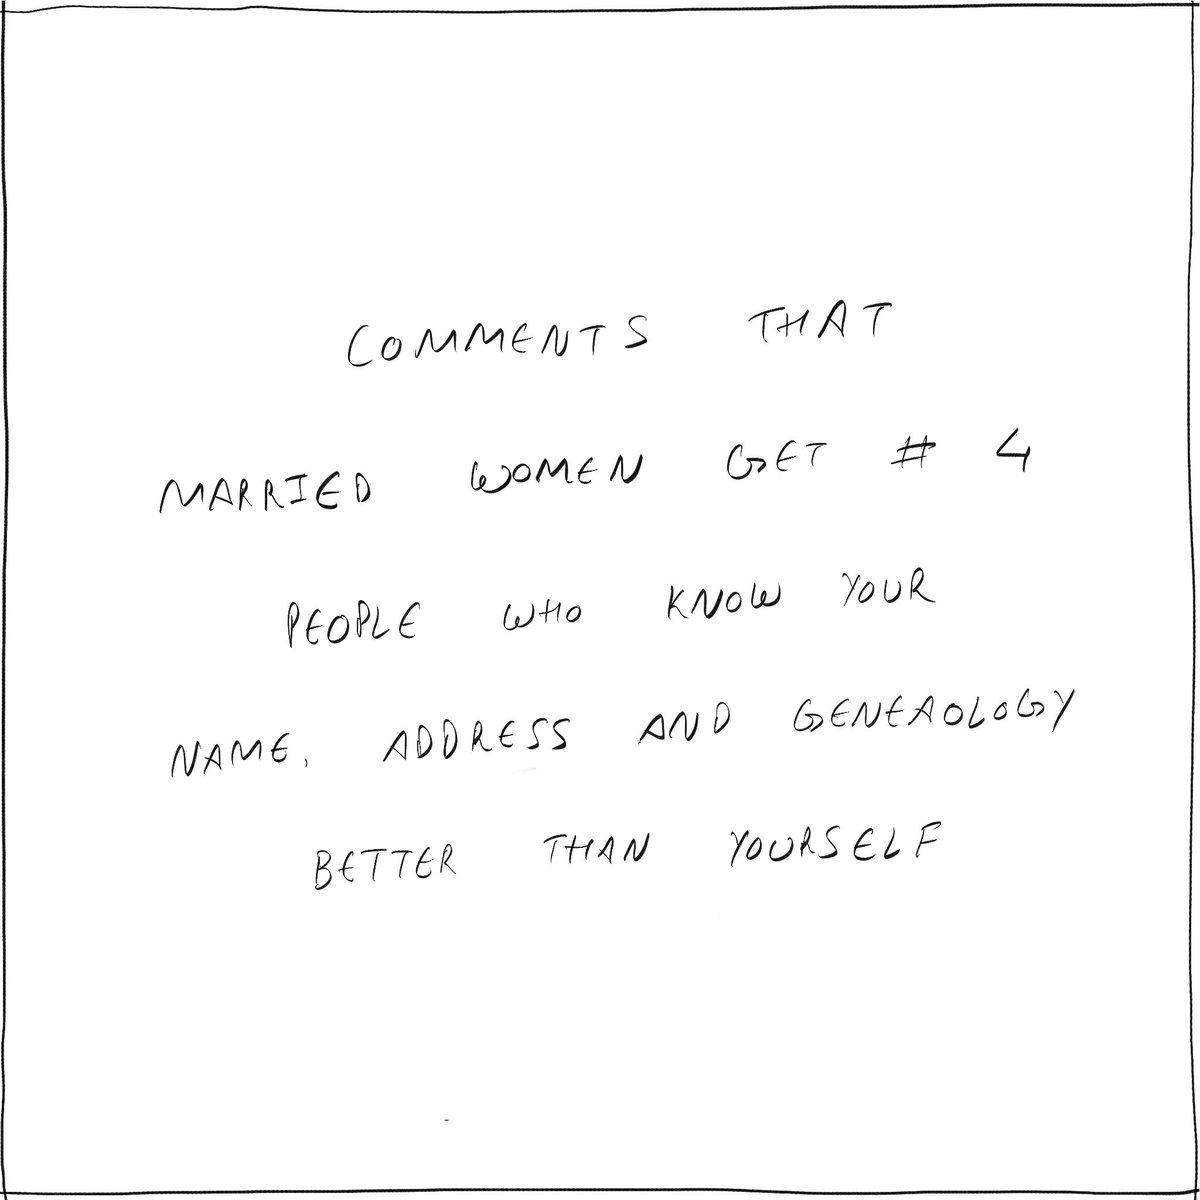 COMMENTS THAT
MARRIED WOMEN GET # 4
PEOPLE WHO KNOW YOUR
NAME, ADDRESS AND GENEAOLOGY
BETTER THAN YOURSELF